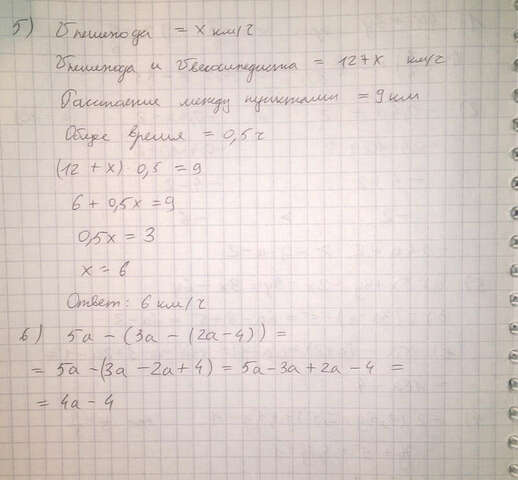 5) Vпешехода = x км/ч
Vпешехода и Vвелосипедиста = 12+x км/ч
Расстояние между пунктами = 9 км
Общее время = 0,5 ч
(12 + x) 0,5 = 9
6 + 0,5x = 9
0,5x = 3
x = 6
Ответ: 6 км/ч
6) 5a - (3a - (2a-4)) =
= 5a - (3a - 2a + 4) = 5a - 3a + 2a - 4 =
= 4a - 4